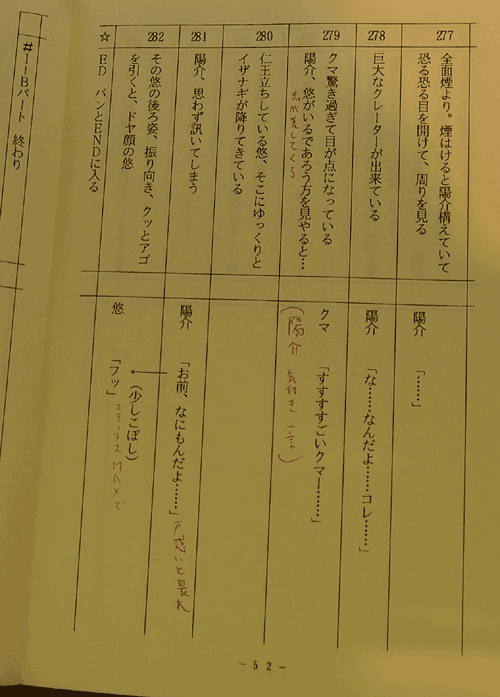 277
全面煙より。煙はけると陽介構えていて
恐る恐る目を開けて、周りを見る
陽介　「……」
278
巨大なクレーターが出来ている
陽介　「な……なんだよ……コレ……」
279
クマ驚き過ぎて目が点になっている
陽介、悠がいるであろう方を見やると…
光が差してくる
クマ　「すすすすごいクマー……」
(陽介、気付き一言。)
280
仁王立ちしている悠、そこにゆっくりと
イザナギが降りてきている
281
陽介、思わず訊いてしまう
陽介　「お前、なにもんだよ……」
戸惑いと畏れ
282
その悠の後ろ姿、振り向き、クッとアゴ
を引くと、ドヤ顔の悠
(少しこぼし)
悠　「フッ」
ステータスMAXで
☆
ED　バンとENDに入る
#1-Bパート　終わり
- 52 -